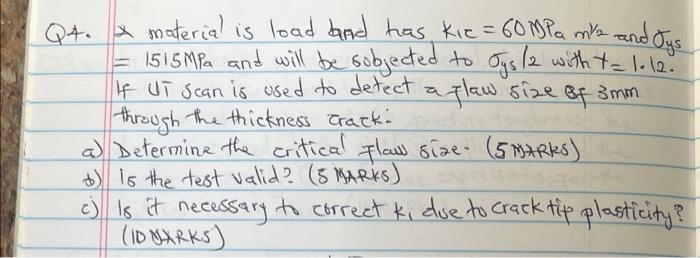 Q4. A material is load and has KIC = 60 MPa m^1/2 and σys
= 1515 MPa and will be sobjected to σys/2 with t = 1.12.
If UT scan is used to detect a flaw size of 3mm
through the thickness crack:
a) Determine the critical flaw size. (5 MARKS)
b) Is the test valid? (5 MARKS)
c) Is it necessary to correct K, due to crack tip plasticity?
(10 MARKS)